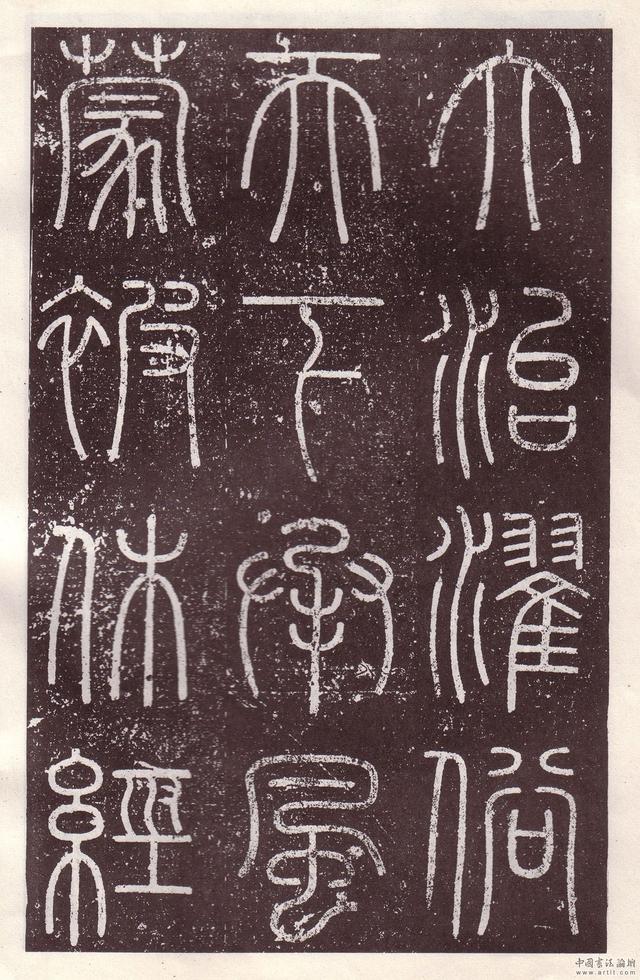 大治濯俗
天下承風
蒙被休經
中國書法論壇
www.artit.com